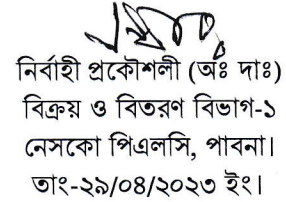 নির্বাহী প্রকৌশলী (অঃ দাঃ)
বিক্রয় ও বিতরণ বিভাগ-১
নেসকো পিএলসি, পাবনা।
তাং-২৯/০৪/২০২৩ ইং।